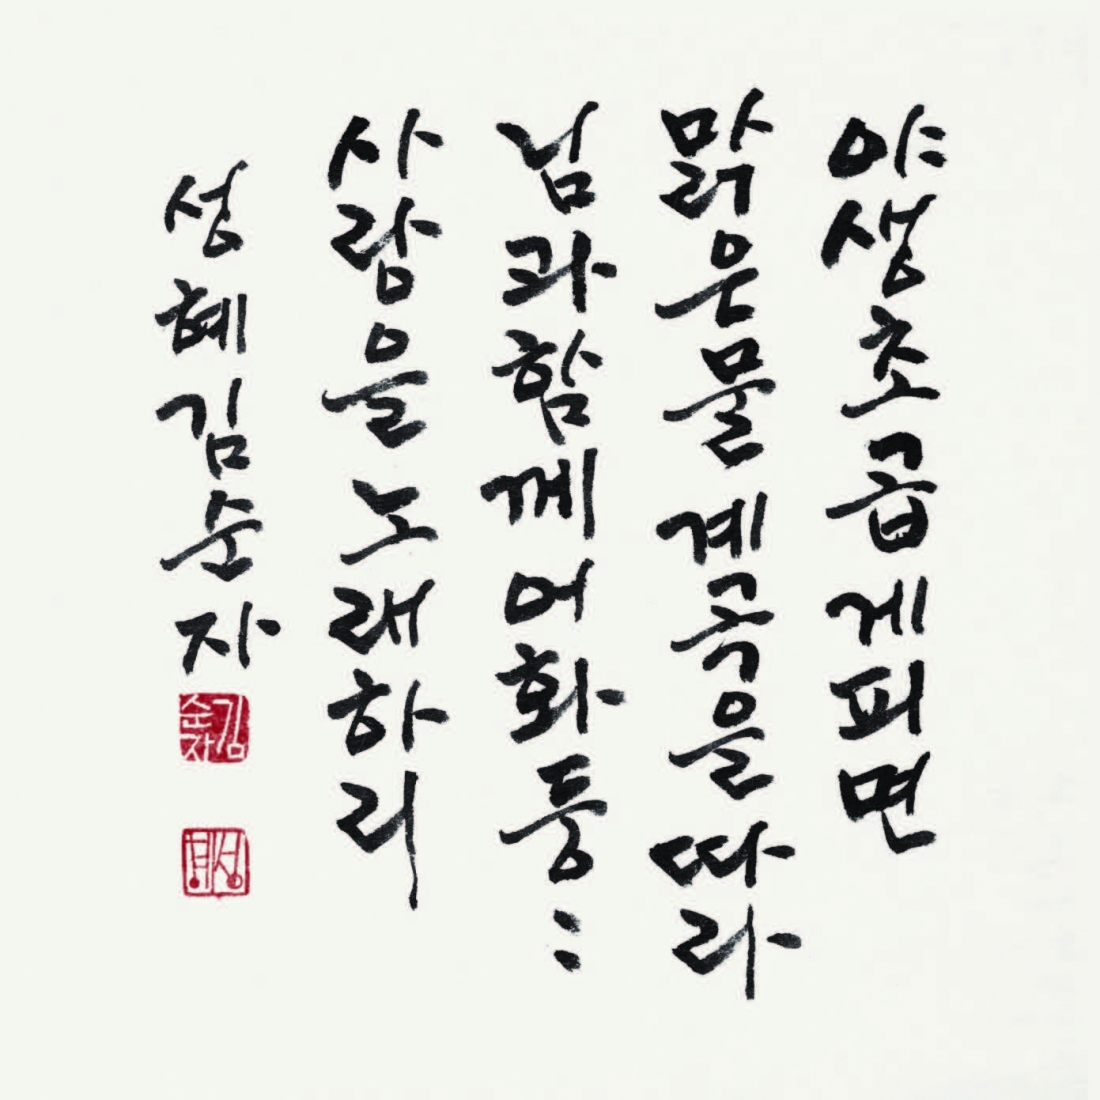 야생초곱게피면
맑은물계곡을따라
님과함께어화둥〃
사람을노래하리
성혜김순자
김순자
성혜